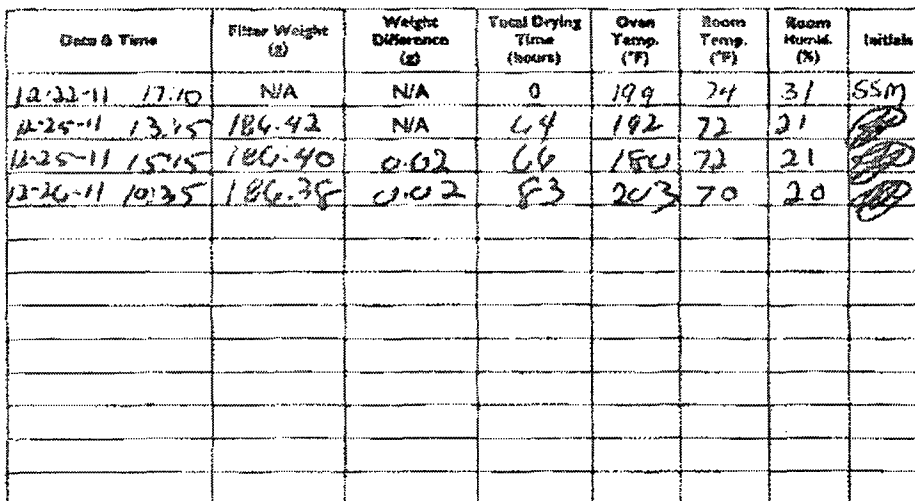 Date & Time Filter Weight (g) Weight Difference (g) Total Drying Time (hours) Oven Temp. (°F) Room Temp. (°F) Room Humid. (%) Initials
12-22-11 17:10 N/A N/A 0 199 74 31 SSM
12-25-11 13:15 186.42 N/A 64 192 72 21
12-25-11 15:15 186.40 0.02 66 180 72 21
12-26-11 10:35 186.38 0.02 83 203 70 20